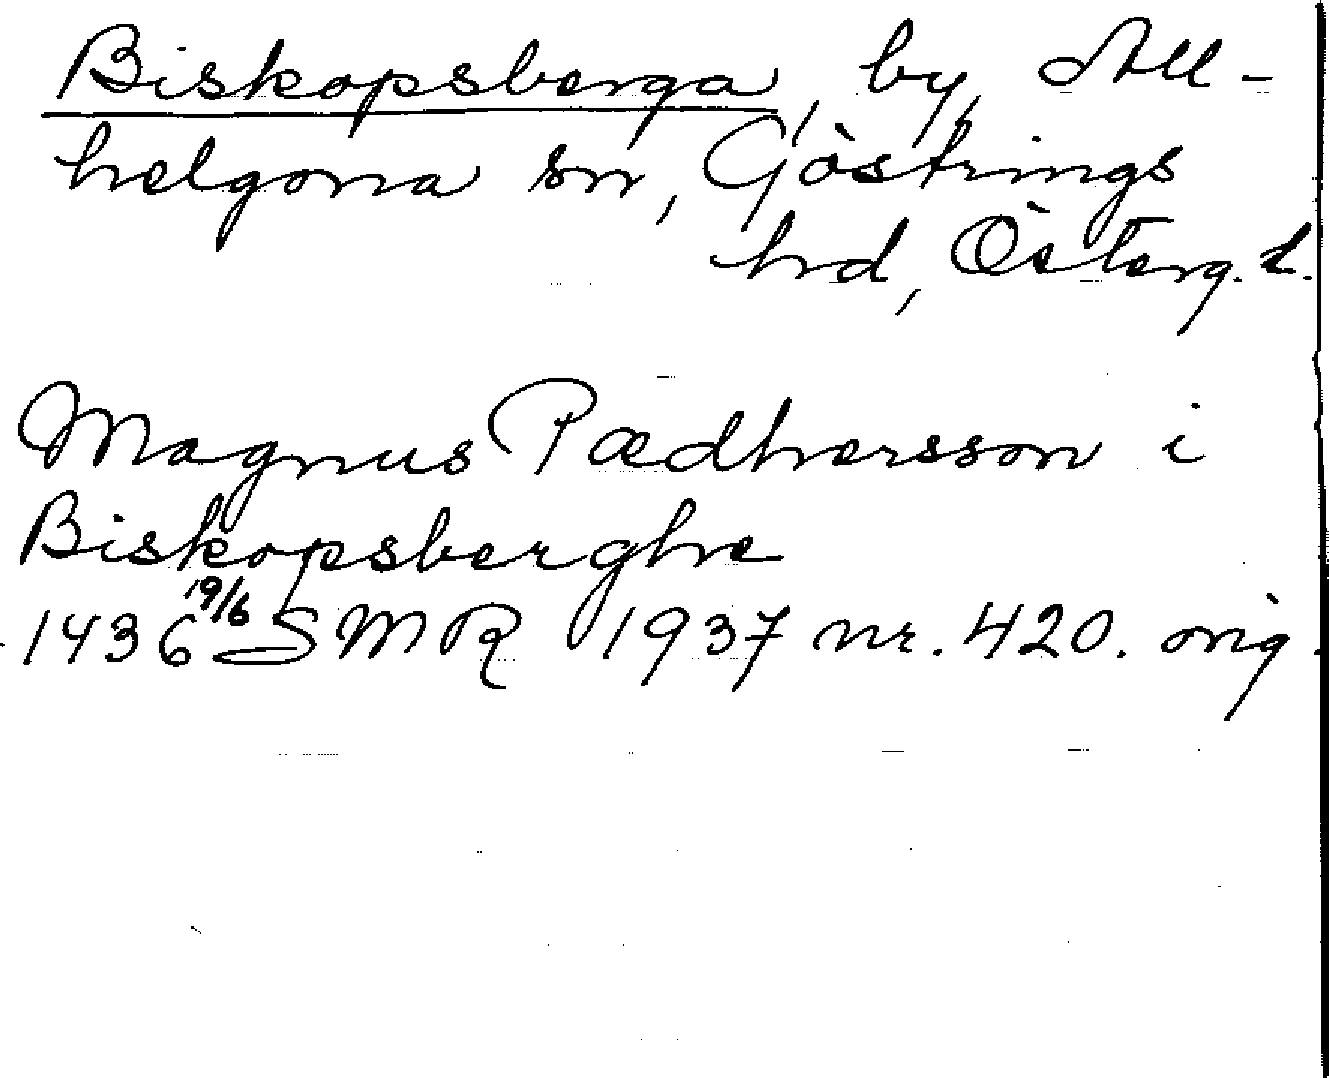 Biskopsberga, by, All-
helgona sn, Göstrings
hrd, Österg. l.
Magnus Pædhersson i
Biskopsberghe
1436 19/6 SMR 1937 nr. 420. orig.